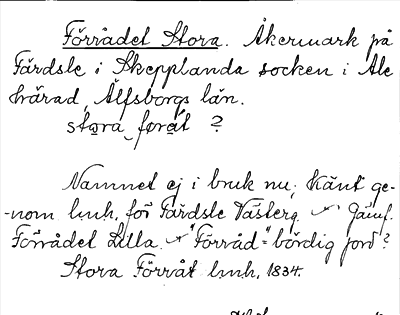 Förrådet Stora. Åkermark på
Färdsle i Skepplanda socken i Ale
härad, Älfsborgs län.
stora forat ?
Namnet ej i bruk nu; känt ge-
-nom lmh. för Färdsle Västerg. Jämf.
Förrådet Lilla. "Förråd" = bördig jord?
Stora Förråt lmh. 1834.